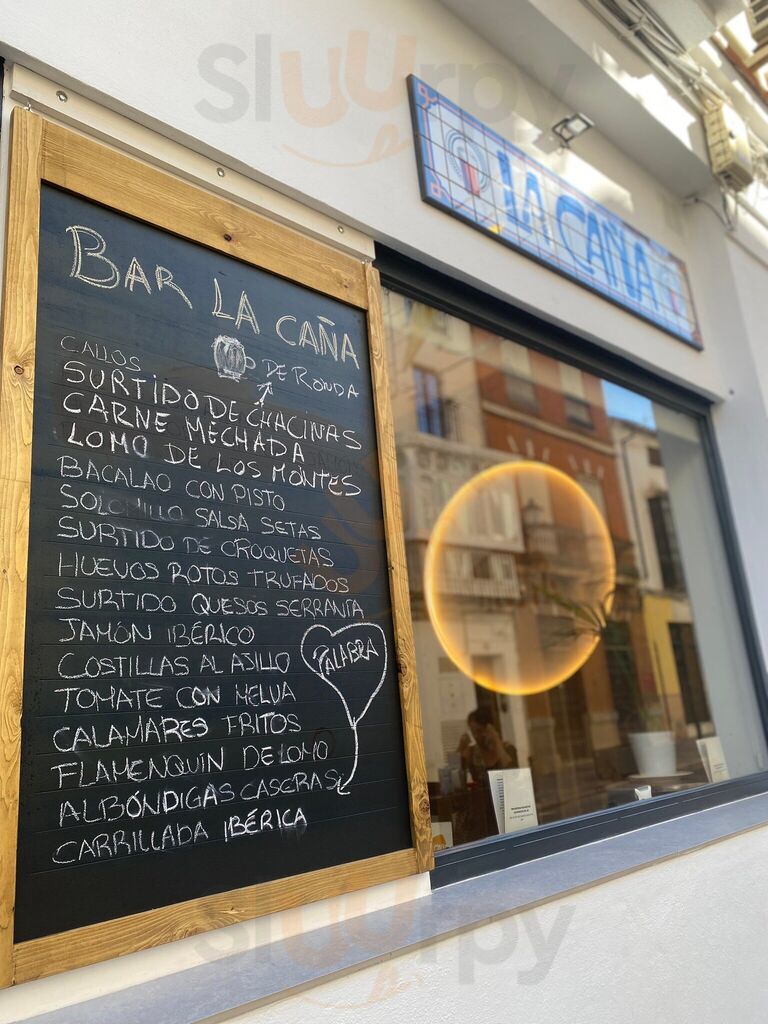 Slurpy
LA CAÑA
BAR LA CAÑA
DE RONDA
CALLOS
SURTIDO DE CHACINAS
CARNE MECHADA
LOMO DE LOS MONTES
BACALAO CON PISTO
SOLOMILLO SALSA SETAS
SURTIDO DE CROQUETAS
HUEVOS ROTOS TRUFADOS
SURTIDO QUESOS SERRANÍA
JAMÓN IBÉRICO
COSTILLAS AL AJILLO
PALABRA
TOMATE CON MELVA
CALAMARES FRITOS
FLAMENQUIN DE LOMO
ALBÓNDIGAS CASERAS
CARRILLADA IBÉRICA
Slurpy